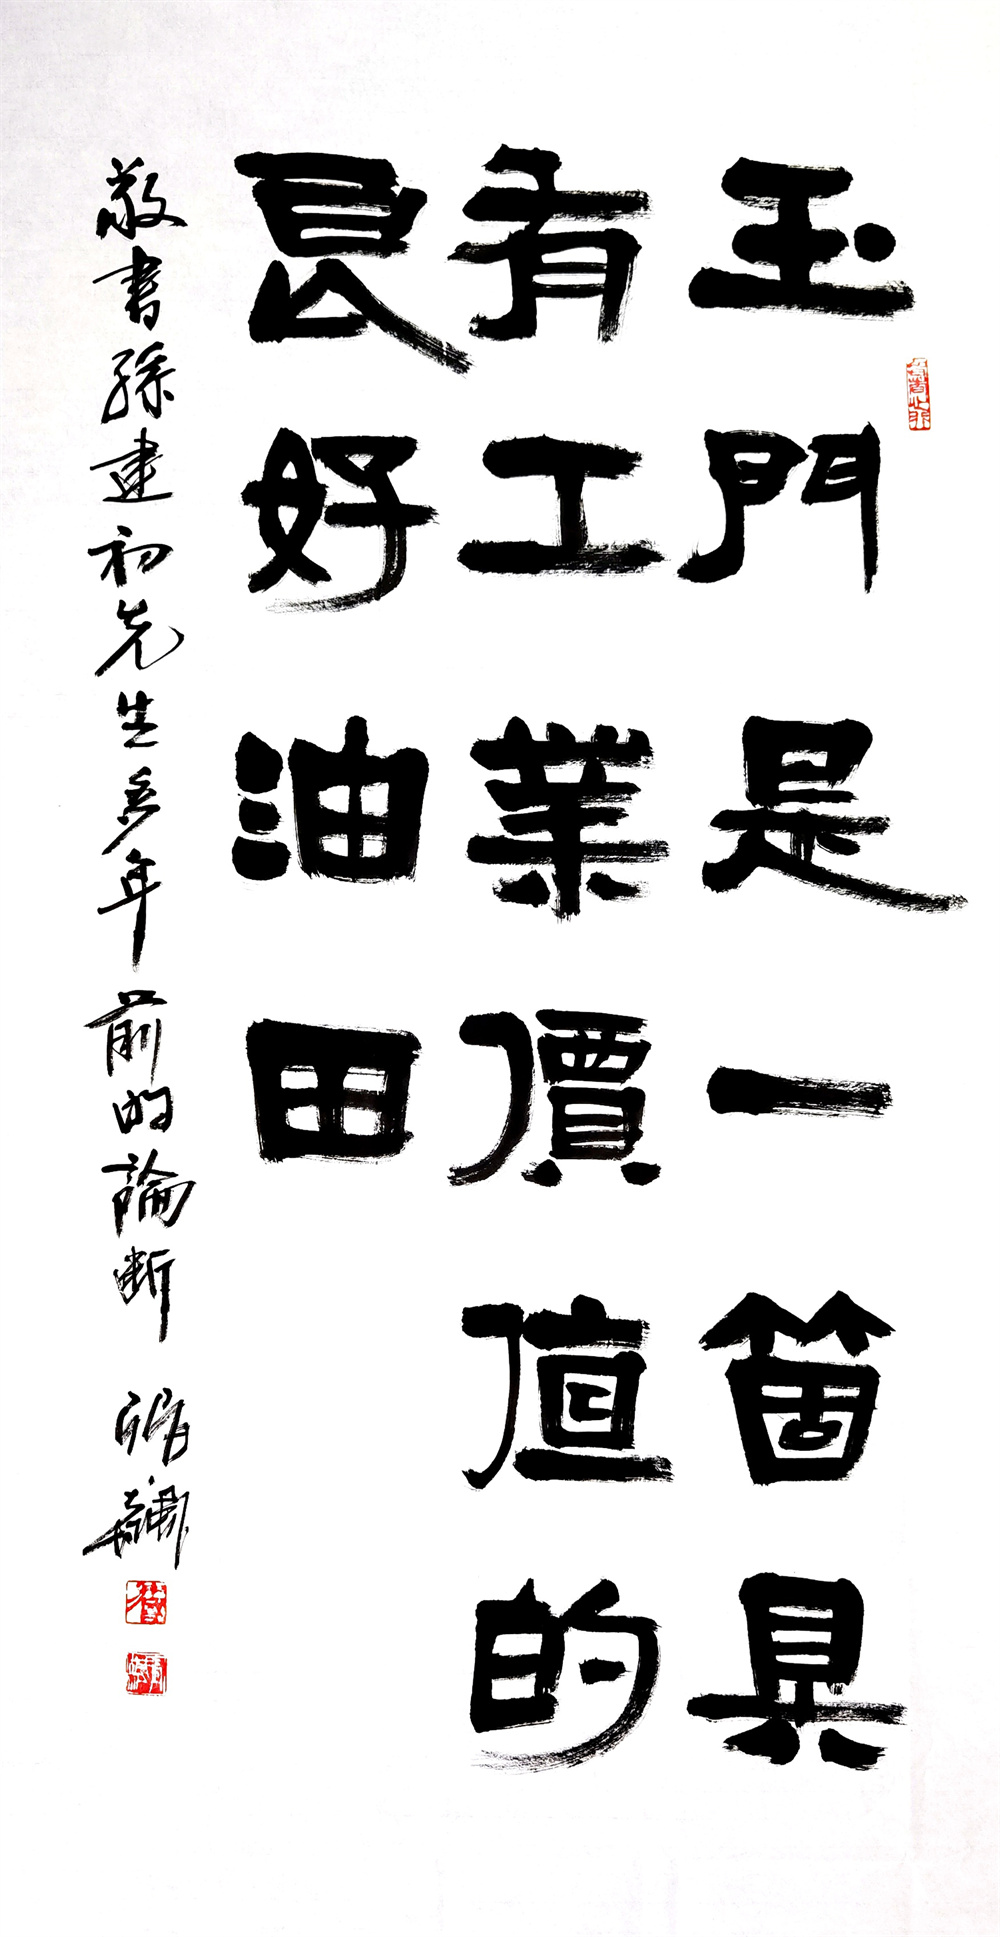 玉門是一箇具
有工業價值的
良好油田
敬書孫建初先生多年前的論断